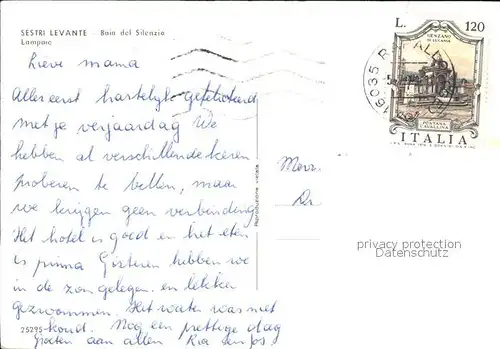 SESTRI LEVANTE - Baia del Silenzio
Lampare
Lieve mama
Allereerst hartelijk gefeliciteerd
met je verjaardag We
hebben al verschillende keren
proberen te bellen, maar
we krijgen geen verbinding
Het hotel is goed en het eten
is prima Gisteren hebben we
in de zon gelegen en lekker
gezwommen. Het water was niet
koud. Nog een prettige dag
Groeten aan allen Ria en Jos
25295
Riproduzione vietata
L. 120
GENZANO
DI LUCANIA
FONTANA
CAVALLINA
ITALIA
16035
Mevr.
privacy protection
Datenschutz